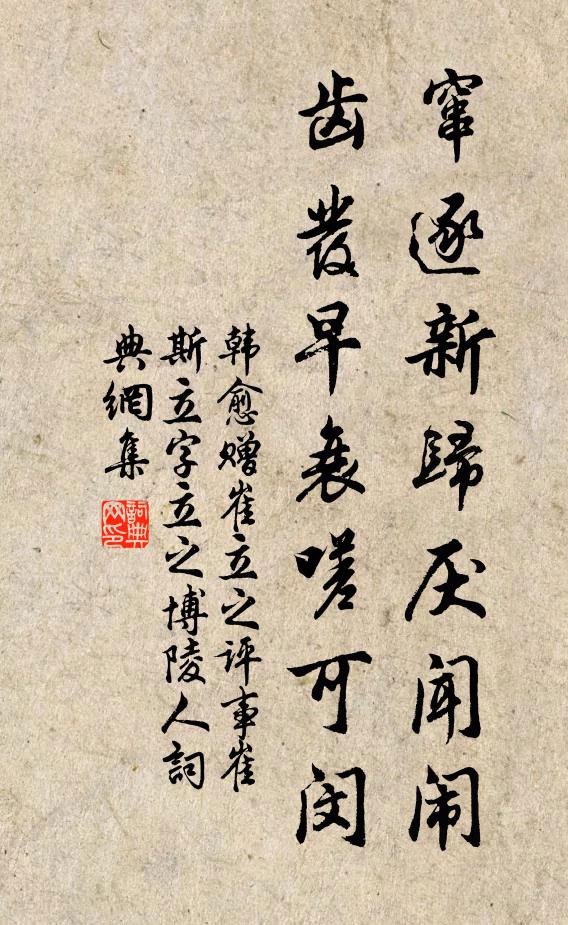 窜逐新歸厌闻闹
齿發早衰嗟可闵
韩愈赠崔立之评事崔
斯立字立之博陵人詞
典網集
詞典
网印